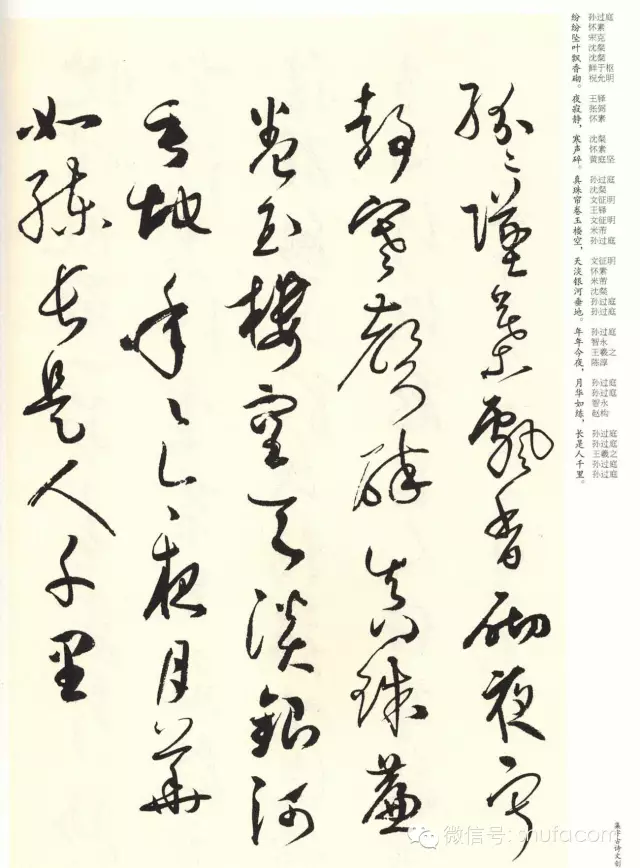 紛〻墜葉飄香砌夜寂
靜寒聲碎真珠簾
卷玉樓空天淡銀河
垂地年〻今夜月華
如練長是人千里
纷纷坠叶飘香砌。夜寂静，寒声碎。真珠帘卷玉楼空，天淡银河垂地。年年今夜，月华如练，长是人千里。
孙过庭
怀素
宋克
沈粲
沈粲
鲜于枢
祝允明
王铎
张弼
怀素
沈粲
怀素
黄庭坚
孙过庭
沈粲
文征明
王铎
文征明
米芾
孙过庭
文征明
怀素
米芾
沈粲
孙过庭
孙过庭
孙过庭
智永
王羲之
陈淳
孙过庭
孙过庭
智永
赵构
孙过庭
孙过庭
王羲之
孙过庭
孙过庭
集字古诗文创
微信号: shufacom